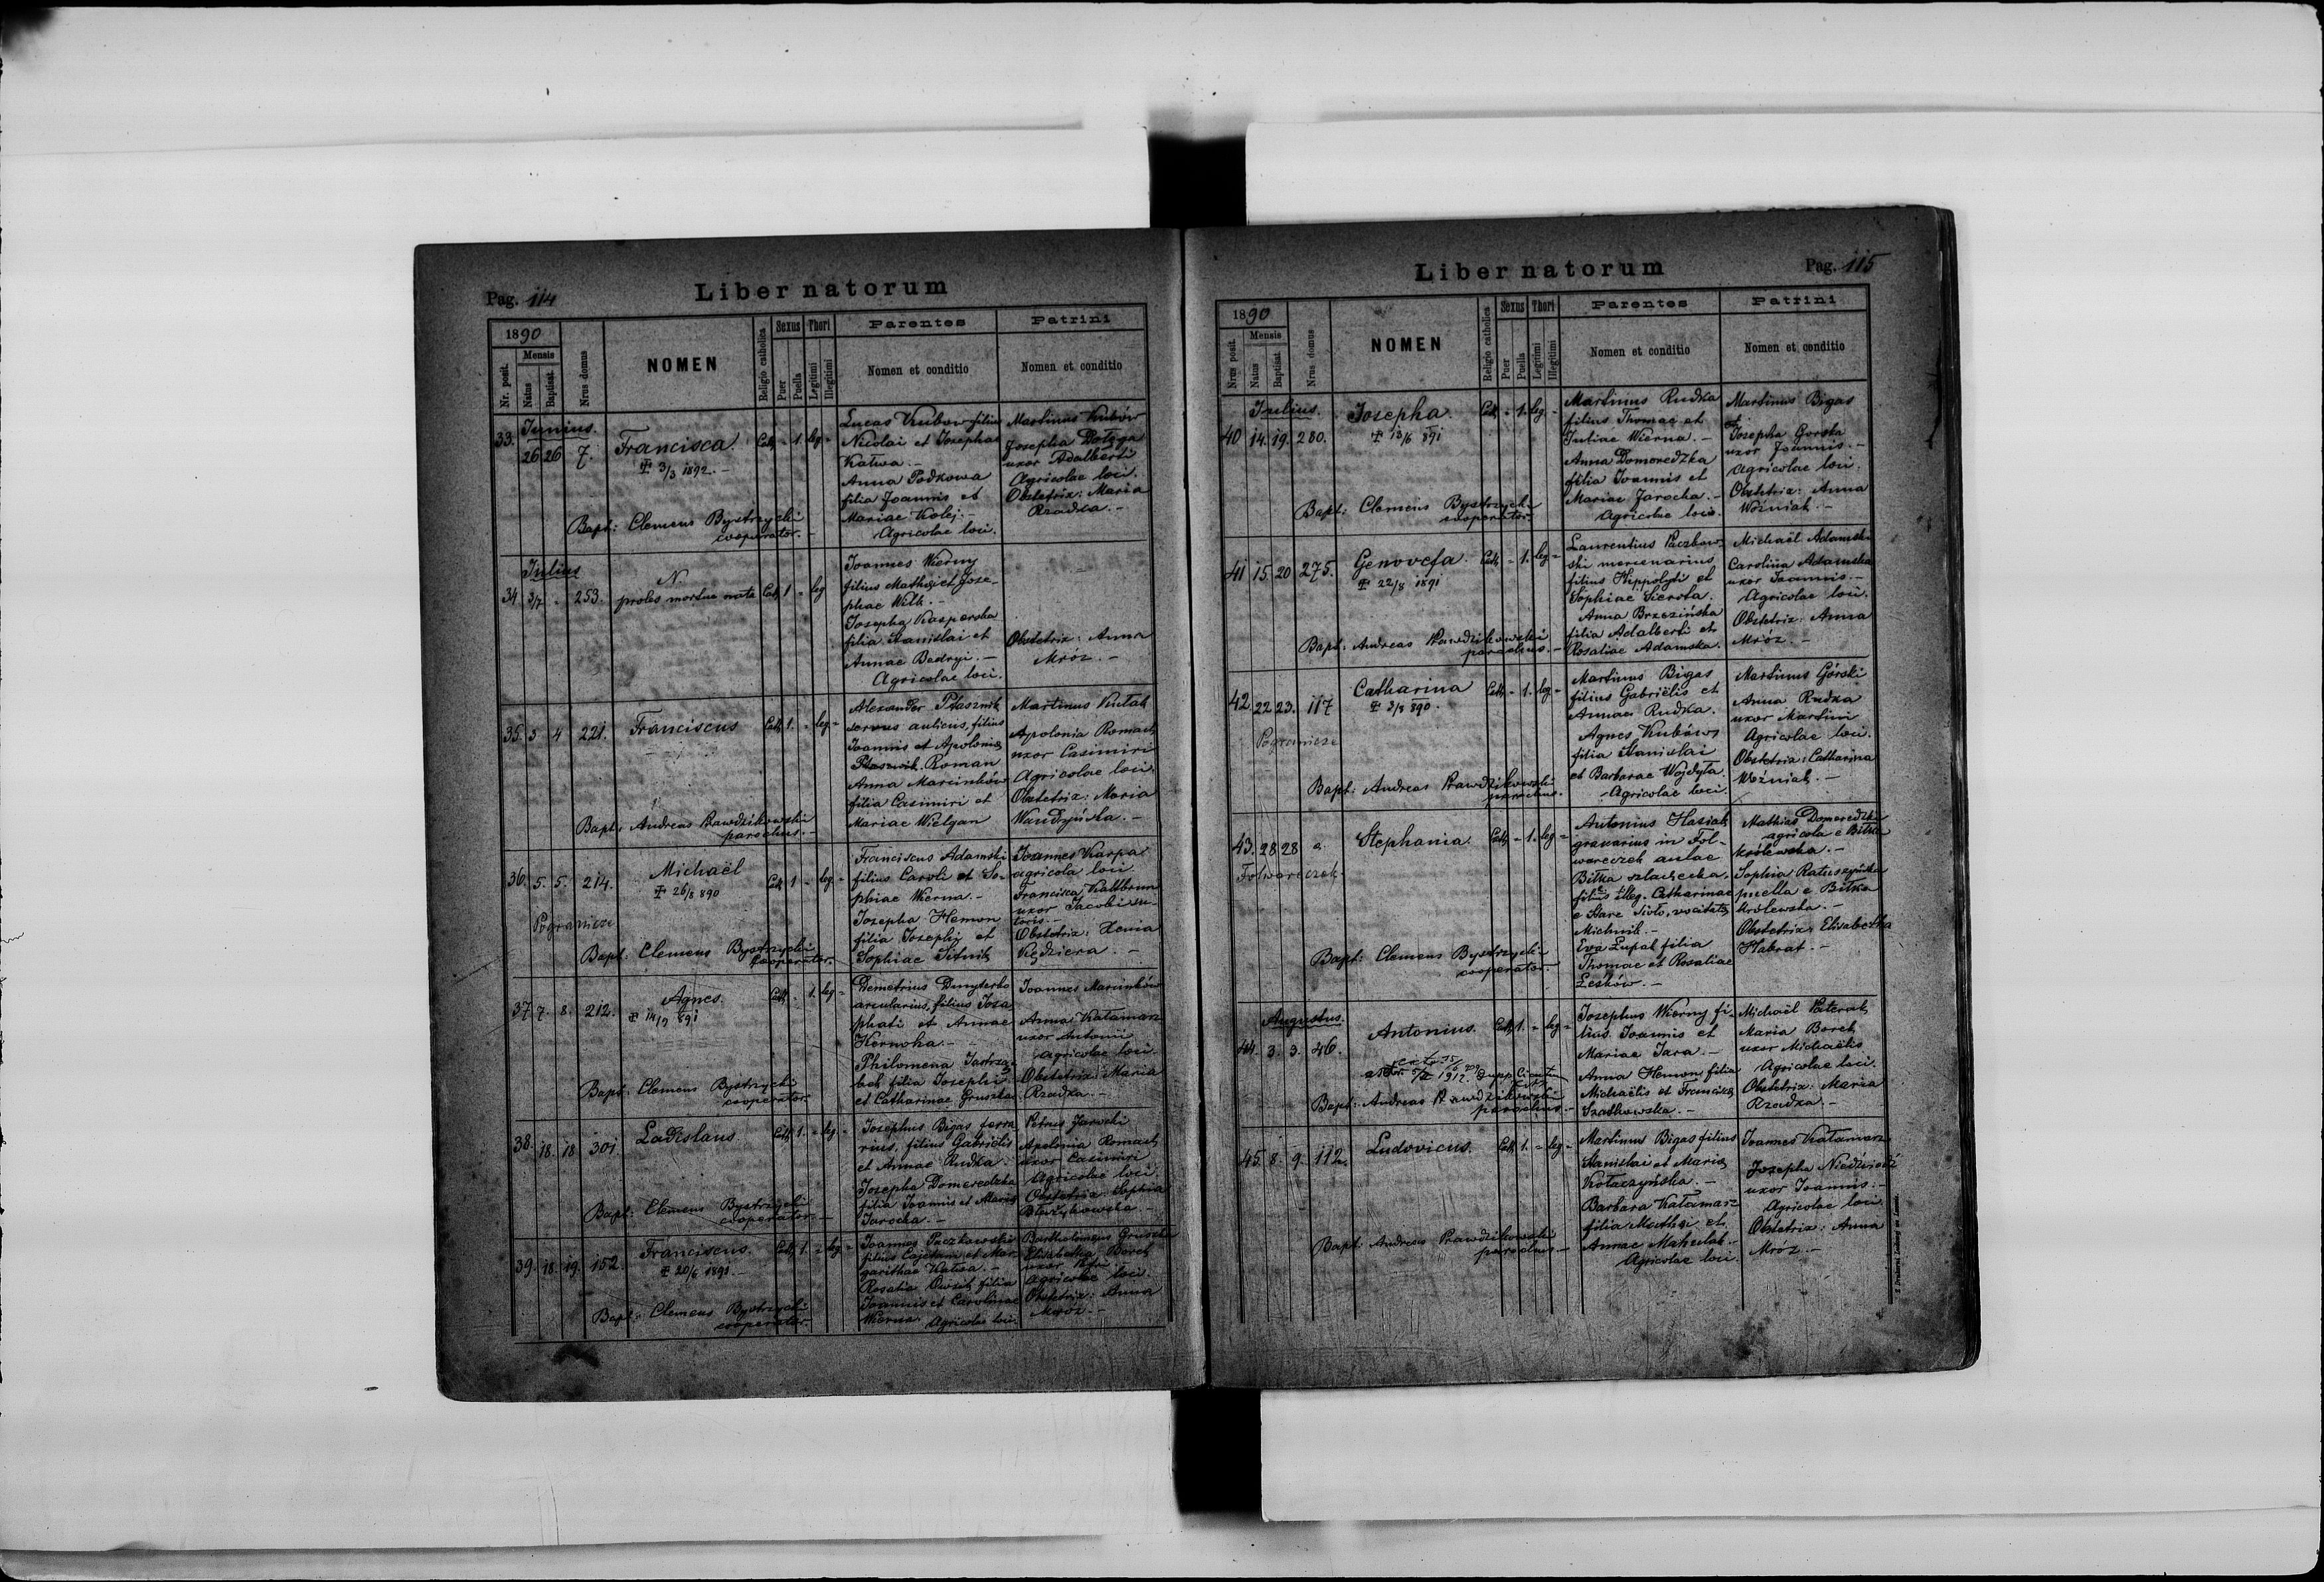 Pag. 114
Liber natorum
1890
Nr. posit.
Mensis
Natus
Baptisat.
Nrus domus
NOMEN
Religio catholica
Sexus
Puer
Puella
Thori
Legitimi
Illegitimi
Parentes
Nomen et conditio
Patrini
Nomen et conditio
33. Junius.
26 26 7.
Francisca.
3/3 1892. -
Cath - 1. leg -
Lucas Kubow filius
Nicolai et Josephae
Katwa. -
Anna Podkowa
filia Joannis et
Mariae Kolej. -
Agricolae loci.
Martinus Kubów
Josepha Dołęga
uxor Adalberti
Agricolae loci.
Obstetrix: Maria
Rzadka. -
Bapt: Clemens Bystrzycki
cooperator. -
Julius
34 3/7 - 253.
N
proles mortua nata
Cath 1 - leg
Joannes Wierny
filius Mathaei et Jose-
phae Wilk. -
Josepha Kasperska
filia Stanislai et
Annae Bedryj. -
Agricolae loci.
Obstetrix: Anna
Mróz. -
35. 3 4 221.
Franciscus
Cath 1. - leg -
Alexander Ptasznik
servus aulicus, filius
Joannis et Apoloniae
Ptasznik Roman
Anna Marcinków
filia Casimiri et
Mariae Wielgan
Martinus Kułak
Apolonia Romach
uxor Casimiri
Agricolae loci.
Obstetrix: Maria
Bapt: Andreas Prawdzikowski
parochus. -
36. 5. 5. 214.
Michaël
26/8 890
Pogranicze
Cath 1 - leg -
Franciscus Adamski
filius Caroli et So-
phiae Wierna. -
Josepha Hemon
filia Josephi et
Sophiae Sitnik
Joannes Karpa
agricola loci.
Francisca
uxor Jacobi su-
toris. -
Obstetrix: Xenia
Kędziera. -
Bapt: Clemens Bystrzycki
cooperator.
37 7. 8. 212.
Agnes.
14/7 891
Cath - 1. leg -
Demetrius Dmyterko
arcularius, filius Josa
phati et Annae
Kernoha. -
Philomena Jastrzą-
bek filia Josephi
et Catharinae Gruszka
Joannes Marcinków
Anna Katamarz
uxor Antonii
Agricolae loci.
Obstetrix: Maria
Rzadka. -
Bapt: Clemens Bystrzycki
cooperator.
38. 18. 18 301.
Ladislaus
Cath 1. - leg -
Josephus Bigas ferra
rius, filius Gabriëlis
et Annae Rudka.
Josepha Domeredzka
filia Joannis et Mariae
Jarocka. -
Petrus Jarocki
Apolonia Romach
uxor Casimiri
Agricolae loci.
Obstetrix: Sophia
Bapt: Clemens Bystrzycki
cooperator -
39. 18. 19. 152.
Franciscus.
20/6 1891. -
Cath 1. - leg -
Joannes Paczkowski
filius Cajetani et Mar-
garithae Katwa. -
Rosalia filia
Joannis et Carolinae
Wierna. Agricolae loci.
Bartholomeus Gruszka
Elisabetha Borek
uxor Petri
Agricolae loci.
Obstetrix: Anna
Mróz. -
Bapt: Clemens Bystrzycki
cooperator.
Liber natorum
Pag. 115
1890
Nrus posit.
Mensis
Natus
Baptisat.
Nrus domus
NOMEN
Religio catholica
Sexus
Puer
Puella
Thori
Legitimi
Illegitimi
Parentes
Nomen et conditio
Patrini
Nomen et conditio
Julius.
40 14. 19. 280.
Josepha.
13/6 891
Cath - 1. leg -
Martinus Rudka
filius Thomae et
Juliae Wierna. -
Anna Domeredzka
filia Joannis et
Mariae Jarocka. -
Agricolae loci.
Martinus Bigas
et
Josepha Gorska
uxor Joannis. -
Agricolae loci.
Obstetrix: Anna
Woźniak. -
Bapt: Clemens Bystrzycki
cooperator.
41 15. 20 275.
Genovefa.
22/8 1891
Cath - 1. leg -
Laurentius Paczkow-
ski mercenarius
filius Hippolyti et
Sophiae Sierota.
Anna Brzezińska
filia Adalberti et
Rosaliae Adamska.
Michaël Adamski
Carolina Adamska
uxor Joannis. -
Agricolae loci.
Obstetrix: Anna
Mróz. -
Bapt: Andreas Prawdzikowski
parochus. -
42 22 23. 117
Catharina
3/8 890.
Pogranicze
Cath - 1. leg -
Martinus Bigas
filius Gabriëlis et
Annae Rudka.
Agnes Kubów
filia Stanislai
et Barbarae Wojdyła.
Agricolae loci.
Martinus Górski
Anna Rudka
uxor Martini
Agricolae loci.
Obstetrix: Catharina
Woźniak. -
Bapt: Andreas Prawdzikowski
parochus.
43. 28 28 a.
Folwarczek.
Stephania.
Cath - 1. leg -
Antonius Hasiak
granarius in Fol-
warczek aulae
Biłka szlachecka,
filius illeg. Catharinae
e Stare Sioło, vocitatus
Michnik. -
Eva Łupal filia
Thomae et Rosaliae
Leśków. -
Mathias Domeredzki
agricola e Biłka
królewska. -
Sophia Ratuszyńska
puella e Biłka
królewska. -
Obstetrix: Elisabetha
Habrat. -
Bapt: Clemens Bystrzycki
cooperator. -
Augustus.
44. 3. 3. 46.
Antonius.
1912
Cath 1. - leg -
Josephus Wierny fi-
lius Joannis et
Mariae Jara. -
Anna Hemon filia
Michaëlis et Franciscae
Szatkowska. -
Michaël Paterak
Maria Borek
uxor Michaëlis
Agricolae loci.
Obstetrix: Maria
Rzadka. -
Bapt: Andreas Prawdzikowski
parochus. -
45. 8. 9. 112.
Ludovicus.
Cath 1. - leg -
Martinus Bigas filius
Stanislai et Mariae
Kołaczyńska. -
Barbara Katamarz
filia Mathaei et
Annae Mahulak. -
Agricolae loci.
Joannes Katamarz
Josepha Niedźwiedź
uxor Joannis. -
Agricolae loci.
Obstetrix: Anna
Mróz. -
Bapt: Andreas Prawdzikowski
parochus -